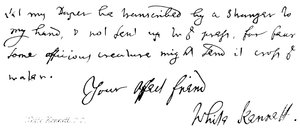 let my Paper be transcribed by a stranger to
my hand, & not sent up to ye press, for fear
some officious creature might send it cross ye
water.
Your affect friend
White Kennett.